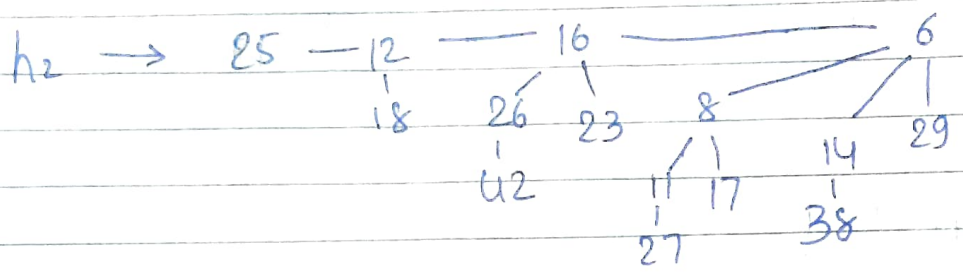 h₂ → 25 — 12 — 16 — 6
18 26 23 8 14 29
42 11 17 38
27